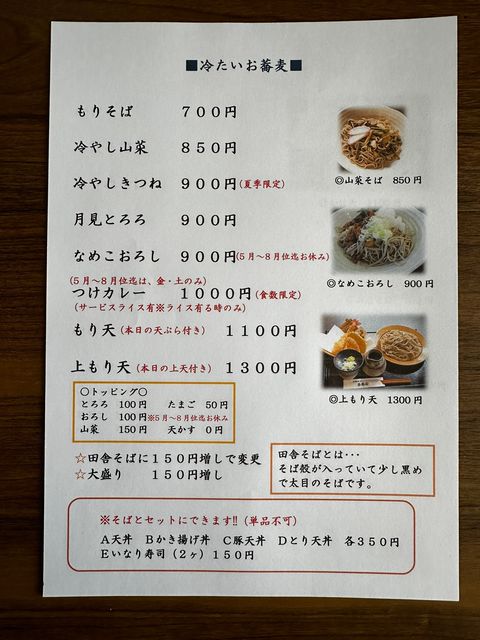 ■冷たいお蕎麦■
もりそば 700円
冷やし山菜 850円
◎山菜そば 850円
冷やしきつね 900円(夏季限定)
月見とろろ 900円
なめこおろし 900円(5月~8月位迄お休み)
◎なめこおろし 900円
(5月~8月位迄は、金・土のみ)
つけカレー 1000円(食数限定)
(サービスライス有※ライス有る時のみ)
もり天(本日の天ぷら付き) 1100円
上もり天(本日の上天付き) 1300円
◎上もり天 1300円
○トッピング○
とろろ 100円 たまご 50円
おろし 100円※5月~8月位迄お休み
山菜 150円 天かす 0円
☆田舎そばに150円増しで変更
☆大盛り 150円増し
田舎そばとは・・・
そば殻が入っていて少し黒め
で太目のそばです。
※そばとセットにできます!!(単品不可)
A天丼 Bかき揚げ丼 C豚天丼 Dとり天丼 各350円
Eいなり寿司(2ヶ)150円